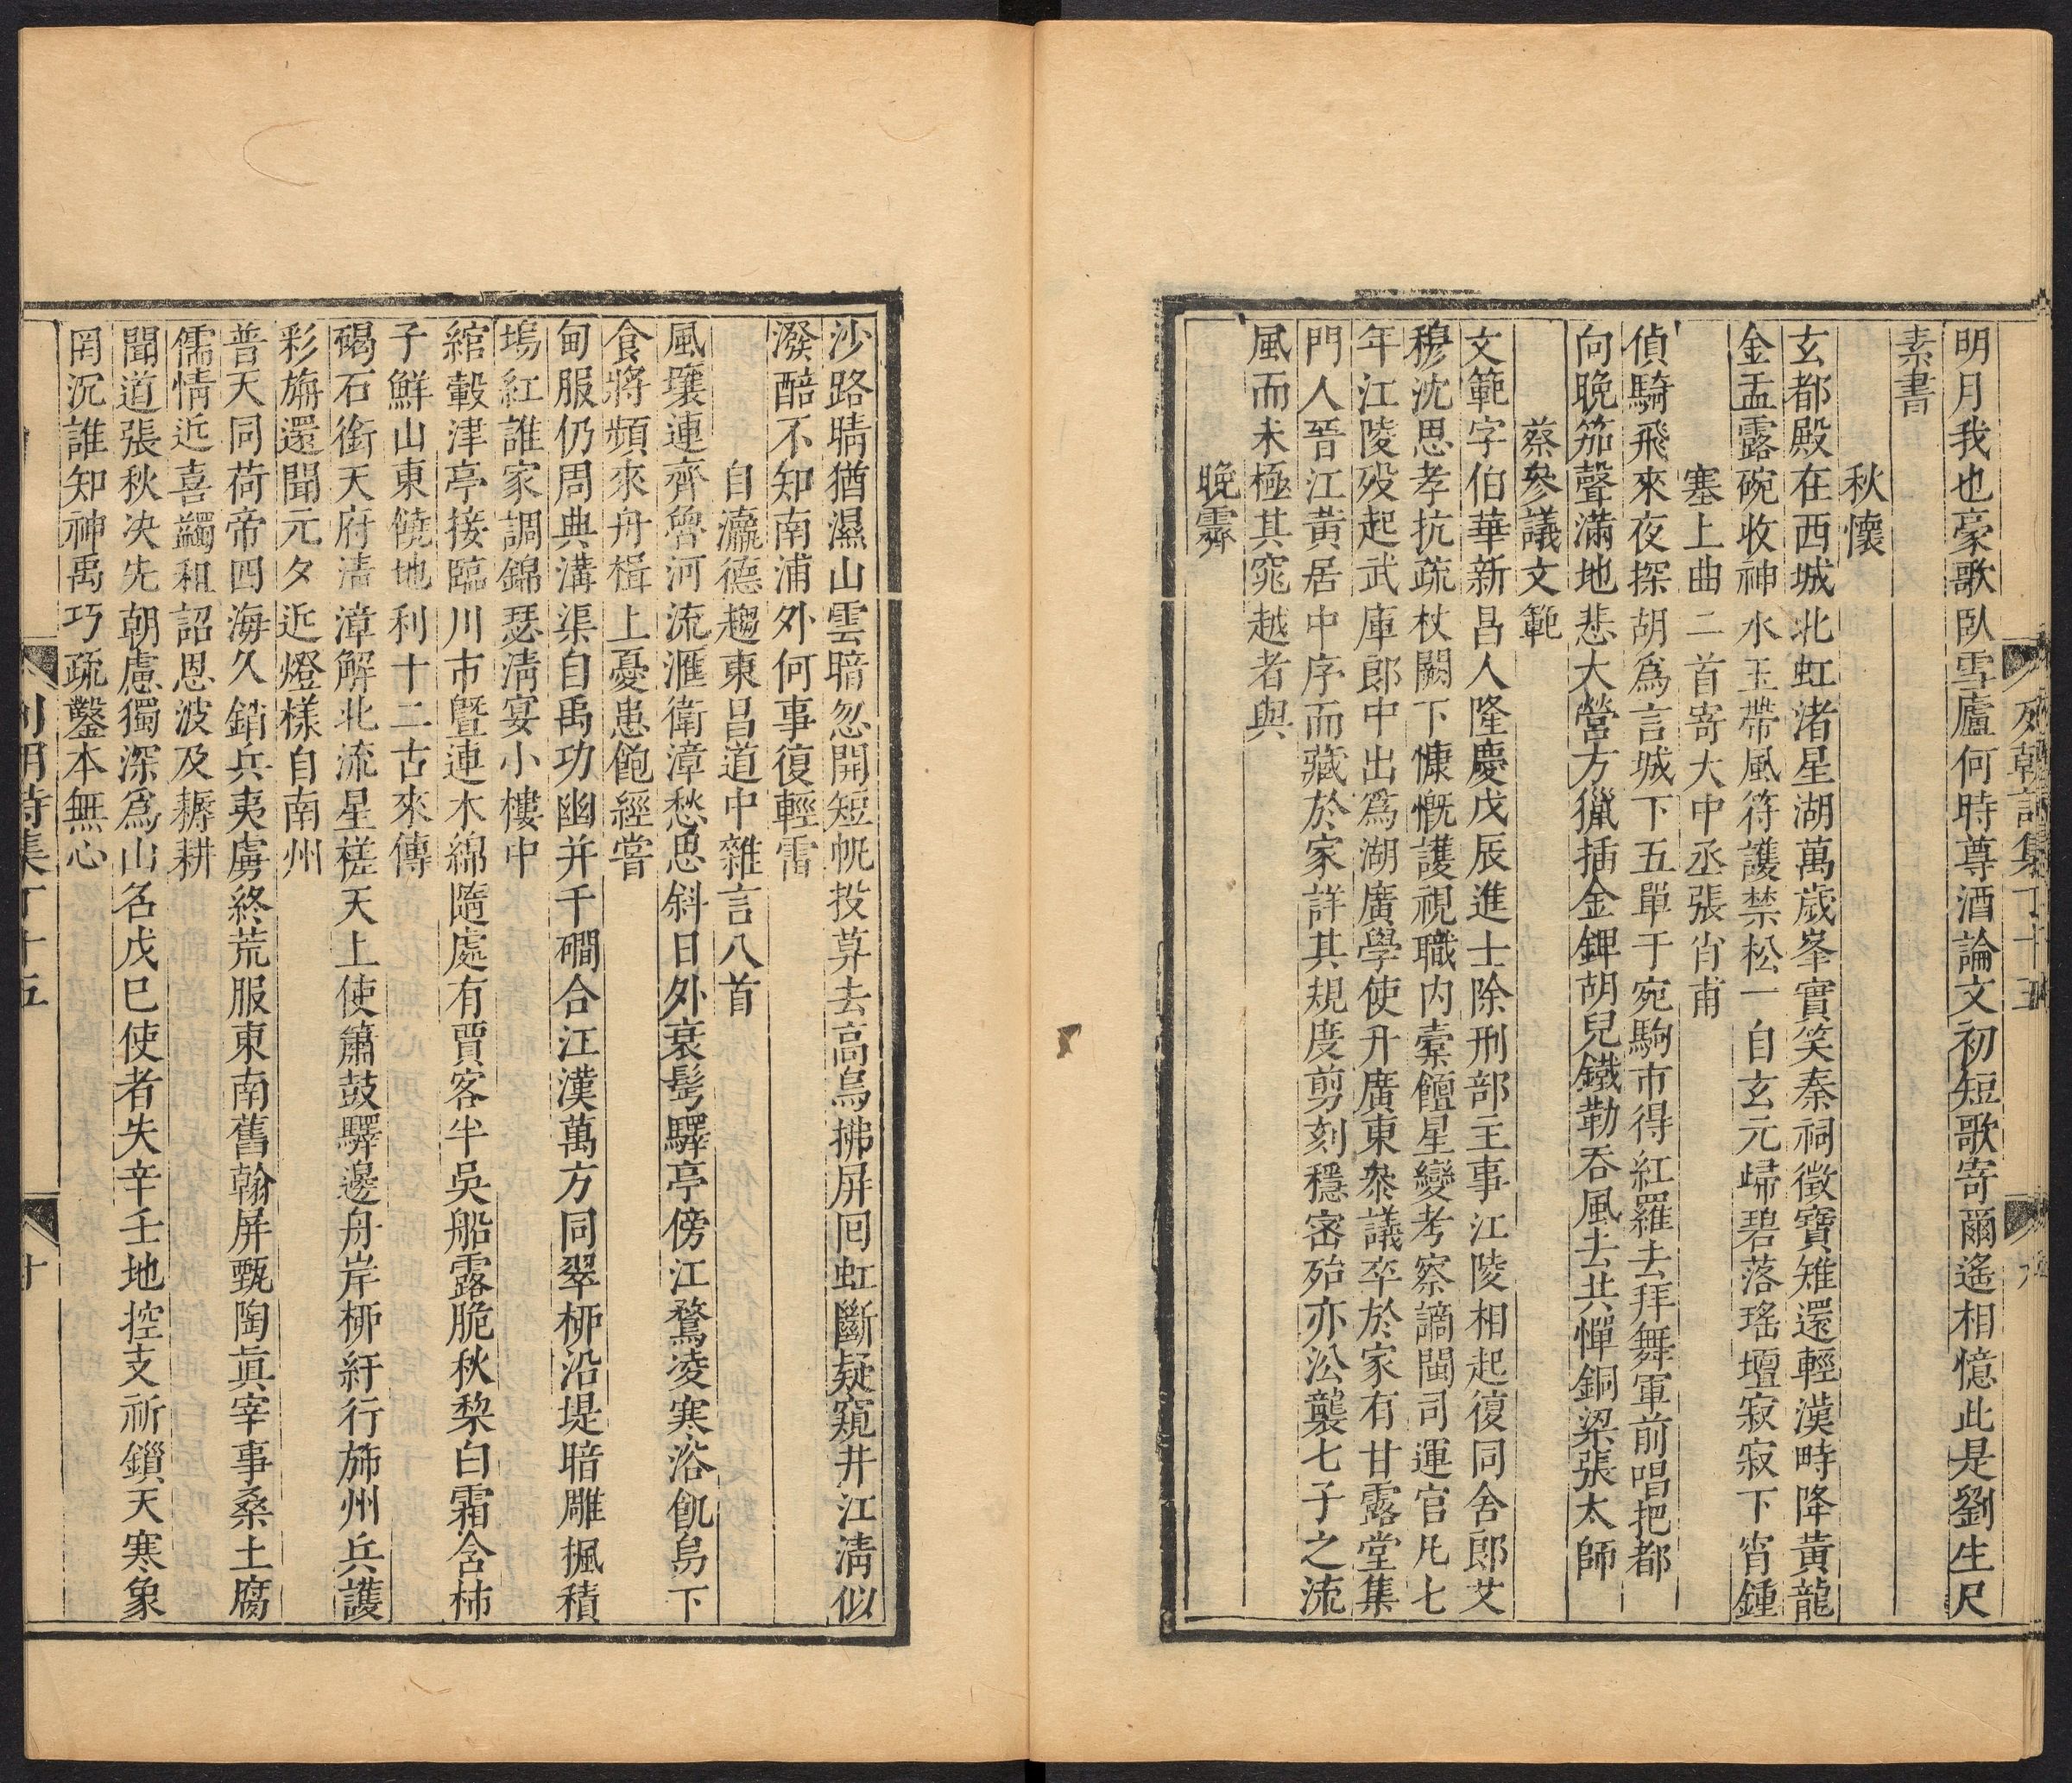 列朝詩集丁十五
九
明月我也豪歌臥雪廬何時尊酒論文初短歌寄爾遙相憶此是劉生尺
素書
秋懷
玄都殿在西城北虹渚星湖萬歲峯實笑秦祠徵寶雉還輕漢畤降黃龍
金盂露碗收神水玉帶風符護禁松一自玄元歸碧落瑤壇寂寂下宵鍾
塞上曲二首寄大中丞張肖甫
偵騎飛來夜探胡爲言城下五單于宛駒市得紅羅去拜舞軍前唱把都
向晚笳聲滿地悲大營方獵插金錍胡兒鐵勒吞風去共憚銅梁張太師
蔡參議文範
文範字伯華新昌人隆慶戊辰進士除刑部主事江陵相起復同舍郎艾
穆沈思孝抗疏杖闕下慷慨護視職內橐饘星變考察謫閩司運官凡七
年江陵歿起武庫郎中出爲湖廣學使升廣東叅議卒於家有甘露堂集
門人晉江黃居中序而藏於家詳其規度剪刻穩密殆亦沿襲七子之流
風而未極其窕越者與
晚霽
沙路晴猶濕山雲暗忽開短帆投草去高鳥拂屏回虹斷疑窺井江淸似
潑醅不知南浦外何事復輕雷
自瀛德趨東昌道中雜言八首
風壤連齊魯河流滙衛漳愁思斜日外衰髩驛亭傍江鶩凌寒浴飢烏下
食將頻來舟楫上憂患飽經嘗
甸服仍周典溝渠自禹功幽并千磵合江漢萬方同翠柳沿堤暗雕楓積
塢紅誰家調錦瑟淸宴小樓中
綰轂津亭接臨川市暨連木綿隨處有賈客半吳船露脆秋棃白霜含柿
子鮮山東饒地利十二古來傳
碣石銜天府淸漳解北流星槎天上使簫鼓驛邊舟岸柳紆行斾州兵護
彩旃還聞元夕近燈樣自南州
普天同荷帝四海久銷兵夷虜終荒服東南舊翰屏甄陶眞宰事桑土腐
儒情近喜蠲租詔恩波及耨耕
聞道張秋决先朝慮獨深爲山名戊巳使者失辛壬地控支祈鎖天寒象
罔沉誰知神禹巧疏鑿本無心
列朝詩集丁十五
十